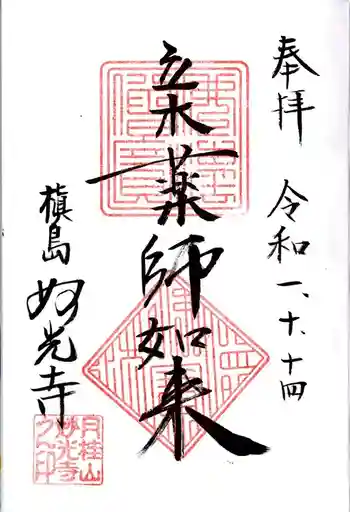 奉拝
令和一、十、十四
立木薬師如来
槇島
妙光寺
月桂山
妙光寺
之印